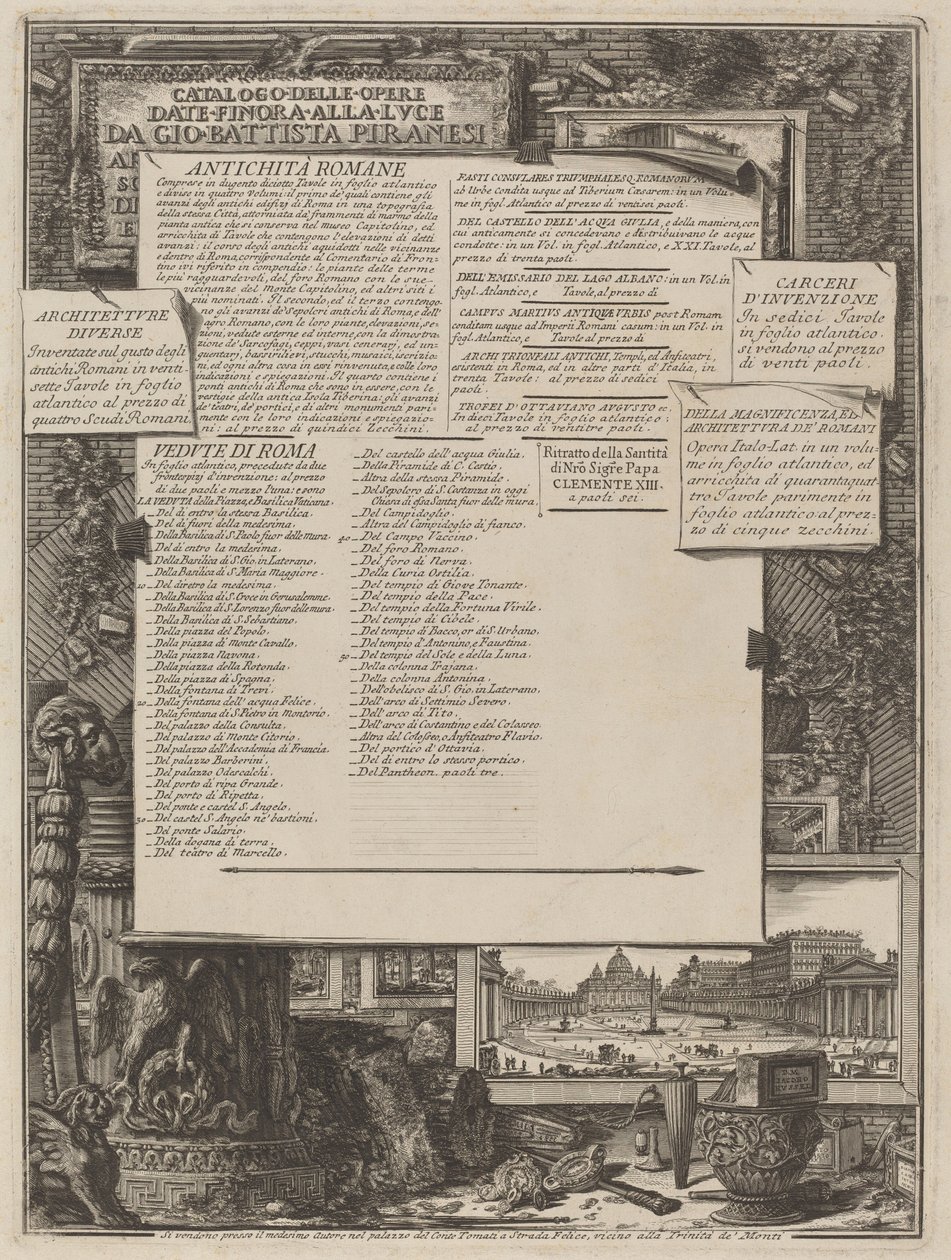 CATALOGO·DELLE·OPERE
DATE·FINORA·ALLA·LVCE
DA GIO·BATTISTA PIRANESI
ANTICHITÀ ROMANE
Comprese in dugento diciotto Tavole in foglio atlantico
e divise in quattro Volumi: il primo de' quali contiene gli
avanzi degli antichi edifizj di Roma in una topografia
della stessa Città, attorniata da' frammenti di marmo della
pianta antica che si conserva nel museo Capitolino, ed
arricchita di Tavole che contengono l'elevazioni di detti
avanzi: il corso degli antichi aquidotti nelle vicinanze
e dentro di Roma, corrispondente al Comentario di Fron-
tino ivi riferito in compendio: le piante delle terme
le più ragguardevoli, del foro Romano con le sue
vicinanze del Monte Capitolino, ed altri siti i
più nominati. Il secondo, ed il terzo contengo-
no gli avanzi de' Sepolcri antichi di Roma, e dell'
agro Romano, con le loro piante, elevazioni, se-
zioni, vedute esterne ed interne, con la dimostra-
zione de' Sarcofagi, ceppi, vasi cenerarj, ed un-
guentarj, bassirilievi, stucchi, musaici, iscrizio-
ni, ed ogni altra cosa in essi rinvenuta, e colle loro
indicazioni e spiegazioni. Il quarto contiene i
ponti antichi di Roma che sono in essere, con le
vestigie della antica Isola Tiberina: gli avanzi
de' teatri, de' portici, e di altri monumenti pari-
mente con le loro indicazioni e spiegazio-
ni: al prezzo di quindici Zecchini.
FASTI CONSVLARES TRIVMPHALESQ. ROMANORVM
ab Urbe condita usque ad Tiberium Cæsarem: in un Volu-
me in fogl. Atlantico al prezzo di ventisei paoli.
DEL CASTELLO DELL' ACQVA GIVLIA, e della maniera, con
cui anticamente si concedevano e distribuivano le acque
condotte: in un Vol. in fogl. Atlantico, e XXI. Tavole, al
prezzo di trenta paoli.
DELL' EMISSARIO DEL LAGO ALBANO: in un Vol. in
fogl. Atlantico, e Tavole, al prezzo di
CAMPVS MARTIVS ANTIQVÆ VRBIS post Romam
conditam usque ad Imperii Romani casum: in un Vol. in
fogl. Atlantico, e Tavole al prezzo di
ARCHI TRIONFALI ANTICHI, Templi, ed Anfiteatri,
esistenti in Roma, ed in altre parti d'Italia, in
trenta Tavole: al prezzo di sedici
paoli.
TROFEI D' OTTAVIANO AVGVSTO ec.
In dieci Tavole in foglio atlantico:
al prezzo di ventitre paoli.
CARCERI
D'INVENZIONE
In sedici Tavole
in foglio atlantico.
si vendono al prezzo
di venti paoli.
ARCHITETTVRE
DIVERSE
Inventate sul gusto degli
antichi Romani in venti-
sette Tavole in foglio
atlantico al prezzo di
quattro Scudi Romani.
DELLA MAGNIFICENZA, ED
ARCHITETTVRA DE' ROMANI
Opera Italo-Lat. in un volu-
me in foglio atlantico, ed
arricchita di quarantaquat-
tro Tavole parimente in
foglio atlantico: al prez-
zo di cinque zecchini.
Ritratto della Santità
di Nrõ Sigre Papa
CLEMENTE XIII.
a paoli sei.
VEDUTE DI ROMA
In foglio atlantico, precedute da due
frontespizj d'invenzione: al prezzo
di due paoli e mezzo l'una: e sono
LA VEDUTA della Piazza, e Basilica Vaticana.
_Del di entro la stessa Basilica.
_Del di fuori della medesima.
_Della Basilica di S. Paolo fuor delle mura.
_Del di entro la medesima.
_Della Basilica di S. Gio. in Laterano.
_Della Basilica di S. Maria Maggiore.
10_Del diretro la medesima.
_Della Basilica di S. Croce in Gerusalemme.
_Della Basilica di S. Lorenzo fuor delle mura.
_Della Basilica di S. Sebastiano.
_Della piazza del Popolo.
_Della piazza di Monte Cavallo.
_Della piazza Navona.
_Della piazza della Rotonda.
_Della piazza di Spagna.
_Della fontana di Trevi.
20_Della fontana dell' acqua Felice.
_Della fontana di S. Pietro in Montorio.
_Del palazzo della Consulta.
_Del palazzo di Monte Citorio.
_Del palazzo dell'Accademia di Francia.
_Del palazzo Barberini.
_Del palazzo Odescalchi.
_Del porto di ripa Grande.
_Del porto di Ripetta.
_Del ponte e castel S. Angelo.
30_Del castel S. Angelo ne' bastioni.
_Del ponte Salario.
_Della dogana di terra.
_Del teatro di Marcello.
_Del castello dell' acqua Giulia.
_Della Piramide di C. Cestio.
_Altra della stessa Piramide.
_Del Sepolcro di S. Costanza in oggi
Chiesa di essa Santa fuor delle mura.
_Del Campidoglio.
_Altra del Campidoglio di fianco.
40_Del Campo Vaccino.
_Del foro Romano.
_Del foro di Nerva.
_Della Curia Ostilia.
_Del tempio di Giove Tonante.
_Del tempio della Pace.
_Del tempio della Fortuna Virile.
_Del tempio di Cibele.
_Del tempio di Bacco, or di S. Urbano.
_Del tempio d'Antonino, e Faustina.
50_Del tempio del Sole e della Luna.
_Della colonna Trajana.
_Della colonna Antonina.
_Dell'obelisco di S. Gio. in Laterano.
_Dell' arco di Settimio Severo.
_Dell' arco di Tito.
_Dell' arco di Costantino e del Colosseo.
_Altra del Colosseo, o Anfiteatro Flavio.
_Del portico d' Ottavia.
_Del di entro lo stesso portico.
_Del Pantheon. paoli tre.
D.M.
Si vendono presso il medesimo Autore nel palazzo del Conte Tomati a Strada Felice, vicino alla Trinità de' Monti